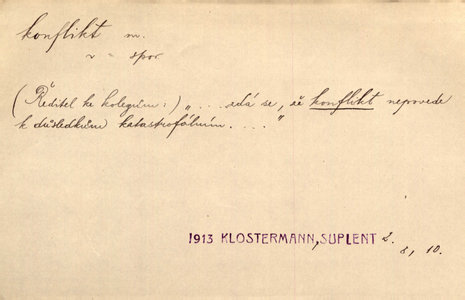 konflikt m.
v = spor
(Ředitel ke kolegům:) „ . . . zdá se, že konflikt nepovede
k důsledkům katastrofálním. . . . "
1913 KLOSTERMANN, SUPLENT 2.
8, 10.